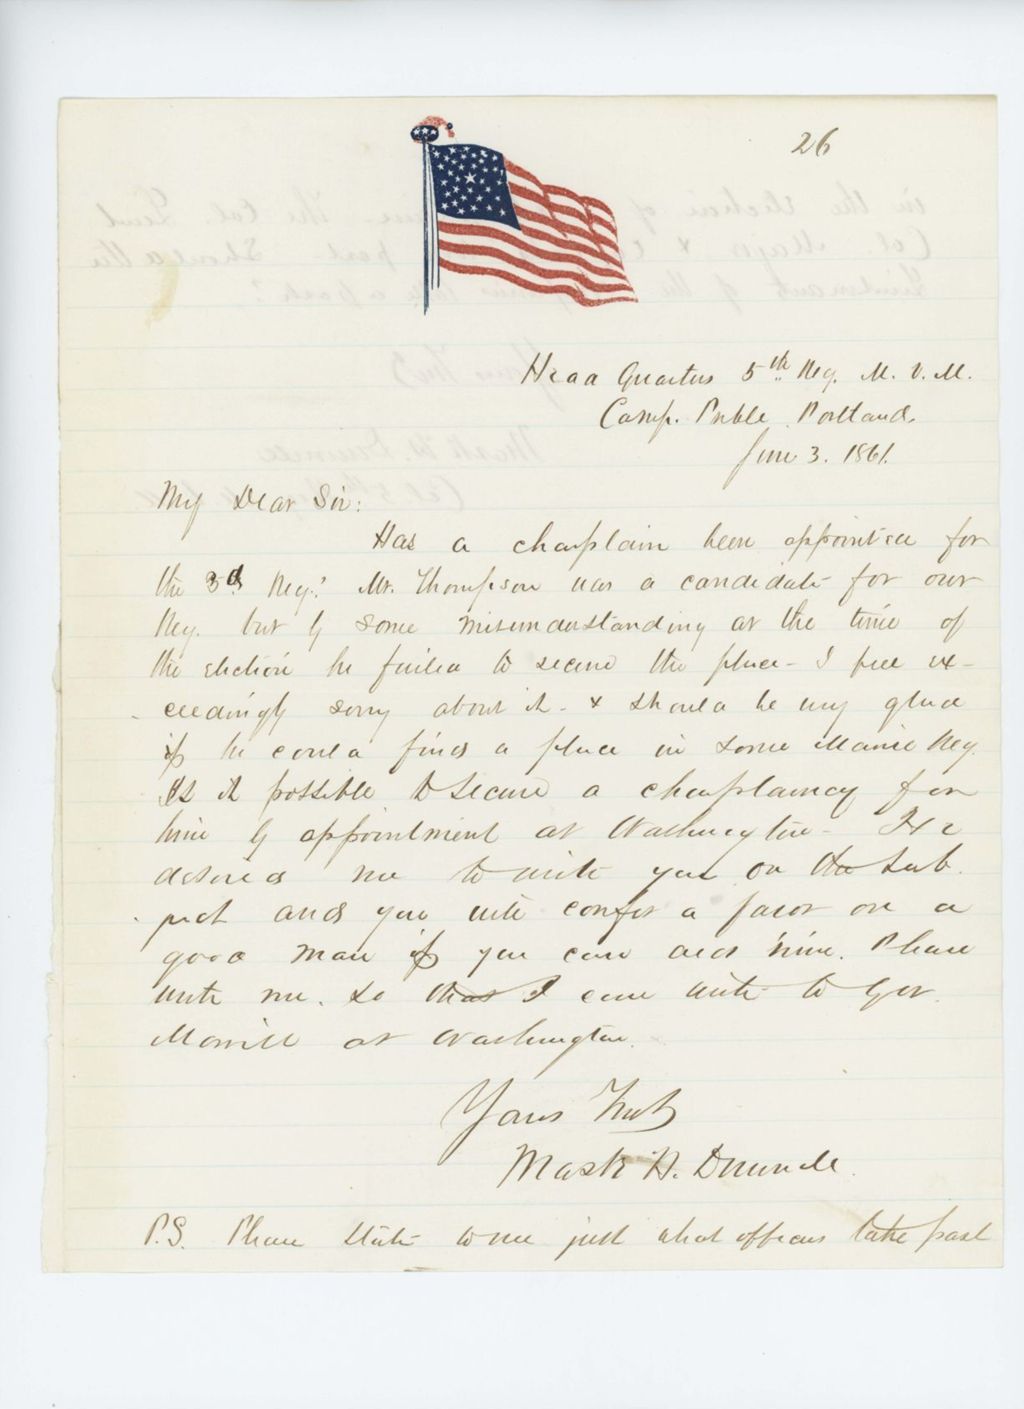 26
Head Quarters 5th Reg. M. V. M.
Camp. Preble. Portland.
June 3. 1861.
My Dear Sir:
Has a chaplain been appointed for
the 3d Reg.? Mr. Thompson was a candidate for our
Reg. but by some misunderstanding at the time of
the election he failed to secure the place - I feel ex-
ceedingly sorry about it - & should be very glad
if he could find a place in some Maine Reg.
Is it possible to secure a chaplaincy for
him by appointment at Washington - He
desired me to write you on the sub
ject and you will confer a favor on a
good man if you can aid him. Please
write me. so that I can write to Gov.
Morrill at Washington.
Yours Truly
Mark H. Dunnell.
P.S. Please state to me just what officers take part